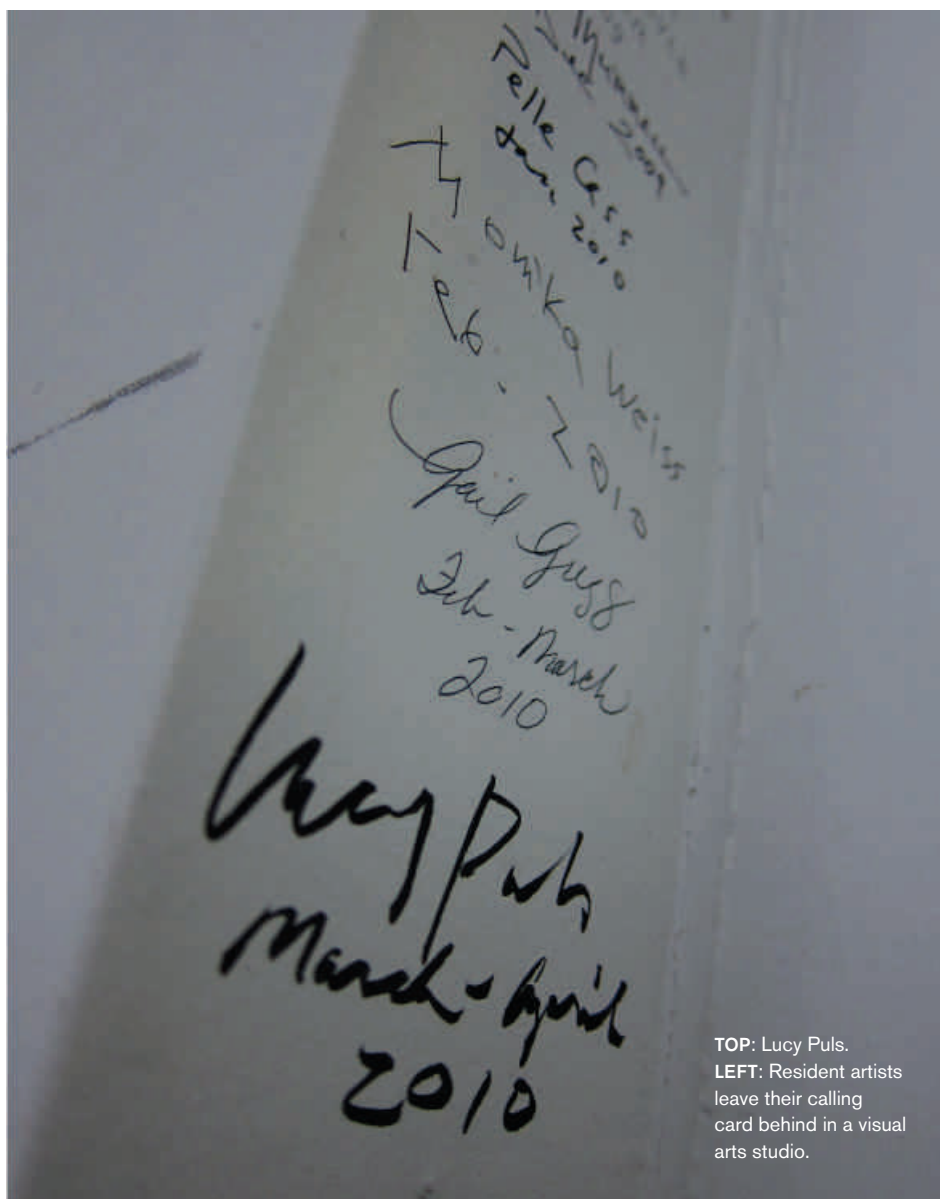 2009
Pelle Cass
Jan 2010
Monika Weiss
Feb. 2010
Gail Gregg
Feb - March
2010
Lucy Puls
March - April
2010
TOP: Lucy Puls.
LEFT: Resident artists
leave their calling
card behind in a visual
arts studio.